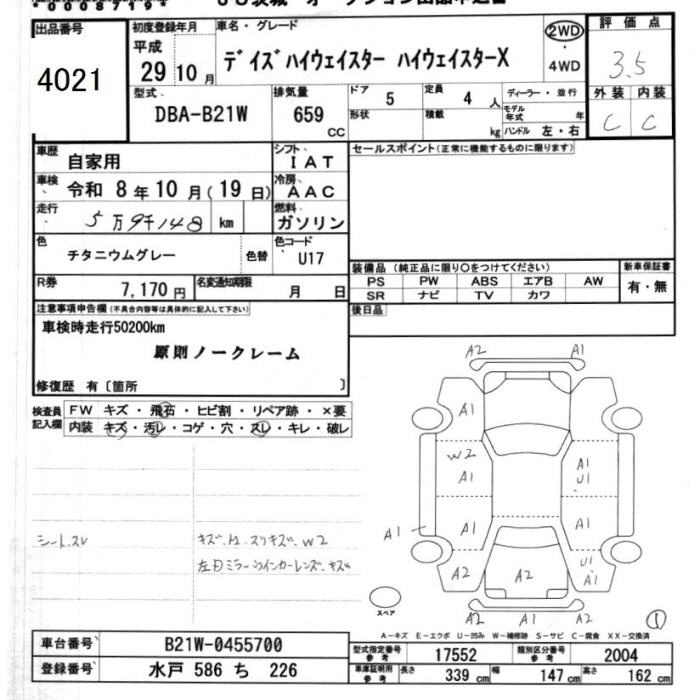 出品番号
4021
初度登録年月
平成
29年10月
車名・グレード
デイズハイウェイスター ハイウェイスターX
2WD
・
4WD
評価点
3.5
外装 内装
C C
型式
DBA-B21W
排気量
659
CC
ドア 5
形状
定員 4 人
積載 kg
ディーラー・並行
モデル年式 年
ハンドル 左・右
車歴 自家用
シフト IAT
車検 令和 8年10月(19日)
冷房 AAC
走行 5万9千148 km
燃料 ガソリン
色 チタニウムグレー 色替
色コード U17
R券 7,170円
名変通知期限 月 日
セールスポイント(正常に機能するものに限ります)
装備品 (純正品に限り○をつけてください)
PS PW ABS エアB AW
SR ナビ TV カワ
新車保証書
有・無
後日品
注意事項申告欄(不具合内容等は具体的に記入して下さい)
車検時走行50200km
原則ノークレーム
修復歴 有〔箇所 〕
検査員記入欄
FW キズ・飛石・ヒビ割・リペア跡・×要
内装 キズ・汚レ・コゲ・穴・スレ・キレ・破レ
シートスレ
キズ、スリキズ、W2
左ドミラーウインカーレンズ、キズ
A2 A1
A1
W2
A1 A1
U1
A1 A1 A1
A2 A2 U1
A1
A2 A1 A2
スペア
1
A－キズ E－エクボ U－凹み W－補修跡 S－サビ C－腐食 XX－交換済
車台番号 B21W-0455700
登録番号 水戸 586 ち 226
型式指定番号 参考 17552
類別区分番号 参考 2004
車庫証明用 参考 長さ 339 cm 幅 147 cm 高さ 162 cm